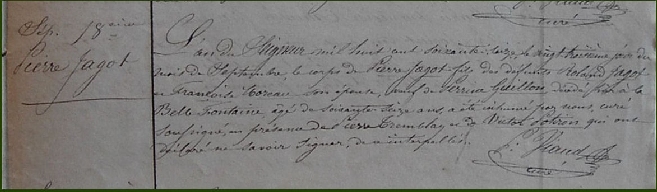 P. Viaud
curé
Sép. 18ème
Pierre Jagot
L'an du Seigneur mil huit cent soixante seize, le vingt troisième jour du
mois de Septembre, le corps de Pierre Jagot fils des défunts Roland Jagot
et Françoise Moreau son épouse, veuf de Perrine Guillon, décédé à la
Belle Fontaine, âgé de soixante seize ans, a été inhumé par nous, curé
soussigné, en présence de Pierre Tremblay et de Victor qui ont
déclaré ne savoir signer, de ce interpellés.
P. Viaud
curé